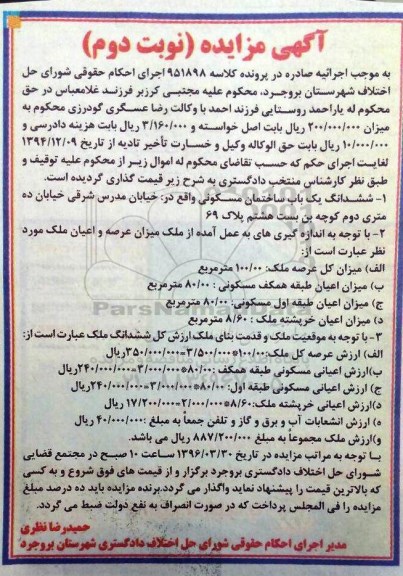 آگهی مزایده (نوبت دوم)
به موجب اجرائیه صادره در پرونده کلاسه ۹۵۱۸۹۸ اجرای احکام حقوقی شورای حل
اختلاف شهرستان بروجرد، محکوم علیه مجتبی کرزبر فرزند غلامعباس در حق
محکوم له یاراحمد روستایی فرزند احمد با وکالت رضا عسگری گودرزی محکوم به
میزان ۲۰۰/۰۰۰/۰۰۰ ریال بابت اصل خواسته و ۳/۱۶۰/۰۰۰ ریال بابت هزینه دادرسی و
۱۰/۰۰۰/۰۰۰ ریال بابت حق الوکاله وکیل و خسارت تأخیر تادیه از تاریخ ۱۳۹۴/۱۲/۰۹
لغایت اجرای حکم که حسب تقاضای محکوم له اموال زیر از محکوم علیه توقیف و
طبق نظر کارشناس منتخب دادگستری به شرح زیر قیمت گذاری گردیده است.
۱- ششدانگ یک باب ساختمان مسکونی واقع در: خیابان مدرس شرقی خیابان ده
متری دوم کوچه بن بست هشتم پلاک ۶۹
۲- با توجه به اندازه گیری های به عمل آمده از ملک میزان عرصه و اعیان ملک مورد
نظر عبارت است از:
الف) میزان کل عرصه ملک: ۱۰۰/۰۰ مترمربع
ب) میزان اعیان طبقه همکف مسکونی : ۸۰/۰۰ مترمربع
ج) میزان اعیان طبقه اول مسکونی: ۸۰/۰۰ مترمربع
د) میزان اعیان خرپشته ملک : ۸/۶۰ مترمربع
۳- با توجه به موقعیت ملک و قدمت بنای ملک ارزش کل ششدانگ ملک عبارت است از:
الف) ارزش عرصه کل ملک:۱۰۰/۰۰*۳/۵۰۰/۰۰۰=۳۵۰/۰۰۰/۰۰۰ریال
ب)ارزش اعیانی مسکونی طبقه همکف :۸۰/۰۰*۳/۰۰۰/۰۰۰=۲۴۰/۰۰۰/۰۰۰ریال
ج) ارزش اعیانی مسکونی طبقه اول: ۸۰/۰۰*۳/۰۰۰/۰۰۰=۲۴۰/۰۰۰/۰۰۰ریال
د)ارزش اعیانی خرپشته ملک:۸/۶۰*۲/۰۰۰/۰۰۰=۱۷/۲۰۰/۰۰۰ ریال
ه) ارزش انشعابات آب و برق و گاز و تلفن جمعاً به مبلغ :۴۰/۰۰۰/۰۰۰ ریال
و)ارزش ملک مجموعاً به مبلغ ۸۸۷/۲۰۰/۰۰۰ ریال می باشد.
با توجه به مراتب مزایده در تاریخ ۱۳۹۶/۰۳/۳۰ ساعت ۱۰ صبح در مجتمع قضایی
شورای حل اختلاف دادگستری بروجرد برگزار و از قیمت های فوق شروع و به کسی
که بالاترین قیمت را پیشنهاد نماید واگذار می گردد.برنده مزایده باید ده درصد مبلغ
مزایده را فی المجلس پرداخت که در صورت انصراف به نفع دولت ضبط می گردد.
حمیدرضا نظری
مدیر اجرای احکام حقوقی شورای حل اختلاف دادگستری شهرستان بروجرد